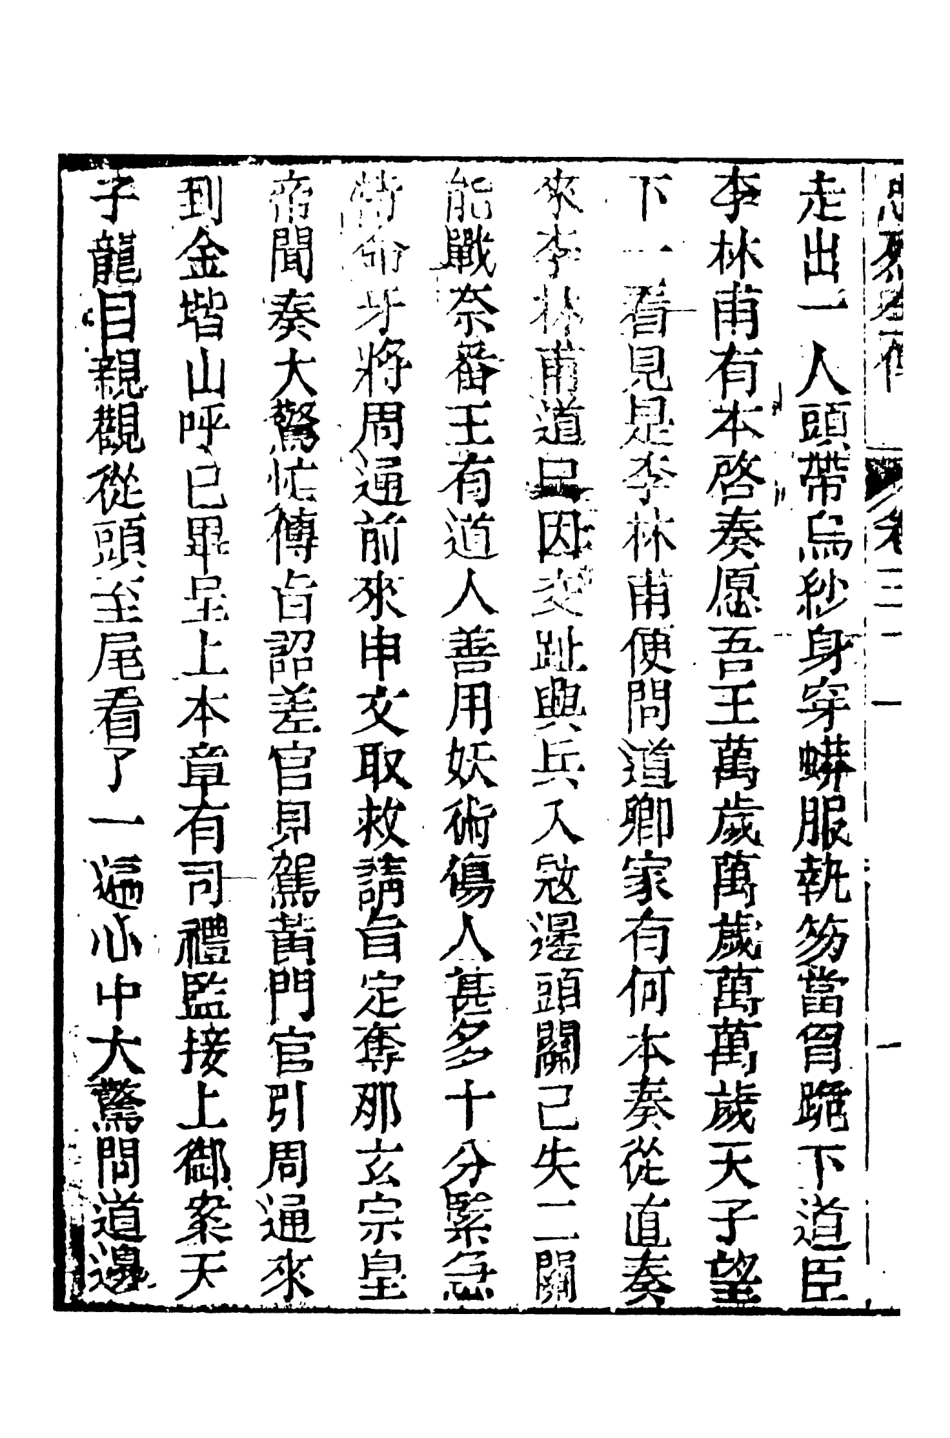 忠烈全傳 卷三 一
走出一人頭帶烏紗身穿蟒服執笏當胷跪下道臣
李林甫有本啓奏愿吾王萬歲萬歲萬萬歲天子望
下一看見是李林甫便問道卿家有何本奏從直奏
來李林甫道只因交趾興兵入寇邊頭關己失二關
能戰奈番王有道人善用妖術傷人甚多十分緊急
特命牙將周通前來申文取救請旨定奪那玄宗皇
帝聞奏大驚忙傳旨詔差官見駕黃門官引周通來
到金堦山呼已畢呈上本章有司禮監接上御案天
子龍目親觀從頭至尾看了一遍心中大驚問道邊